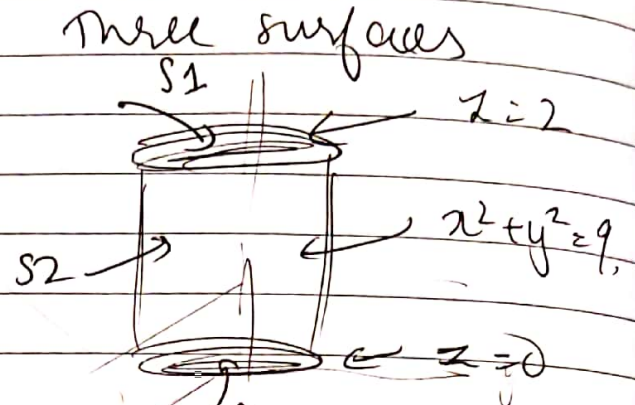 Three surfaces
S1
z=2
x²+y²=9,
S2
z=0